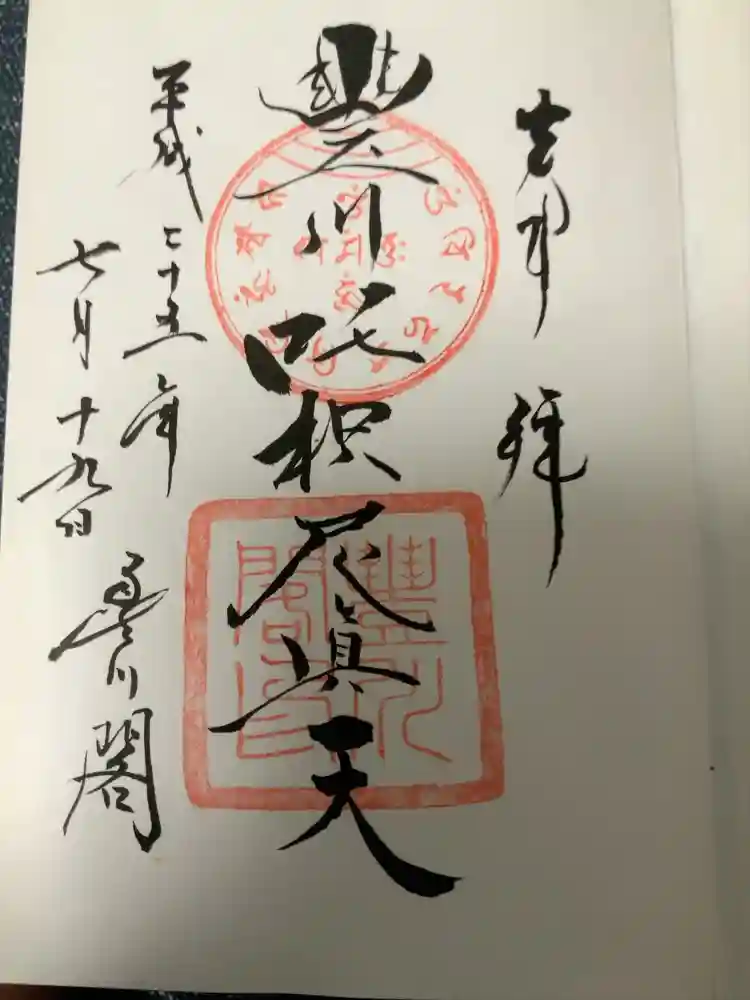 奉拝
豐川吒枳尼眞天
平成二十五年
七月十九日
豊川閣
豐川閣印